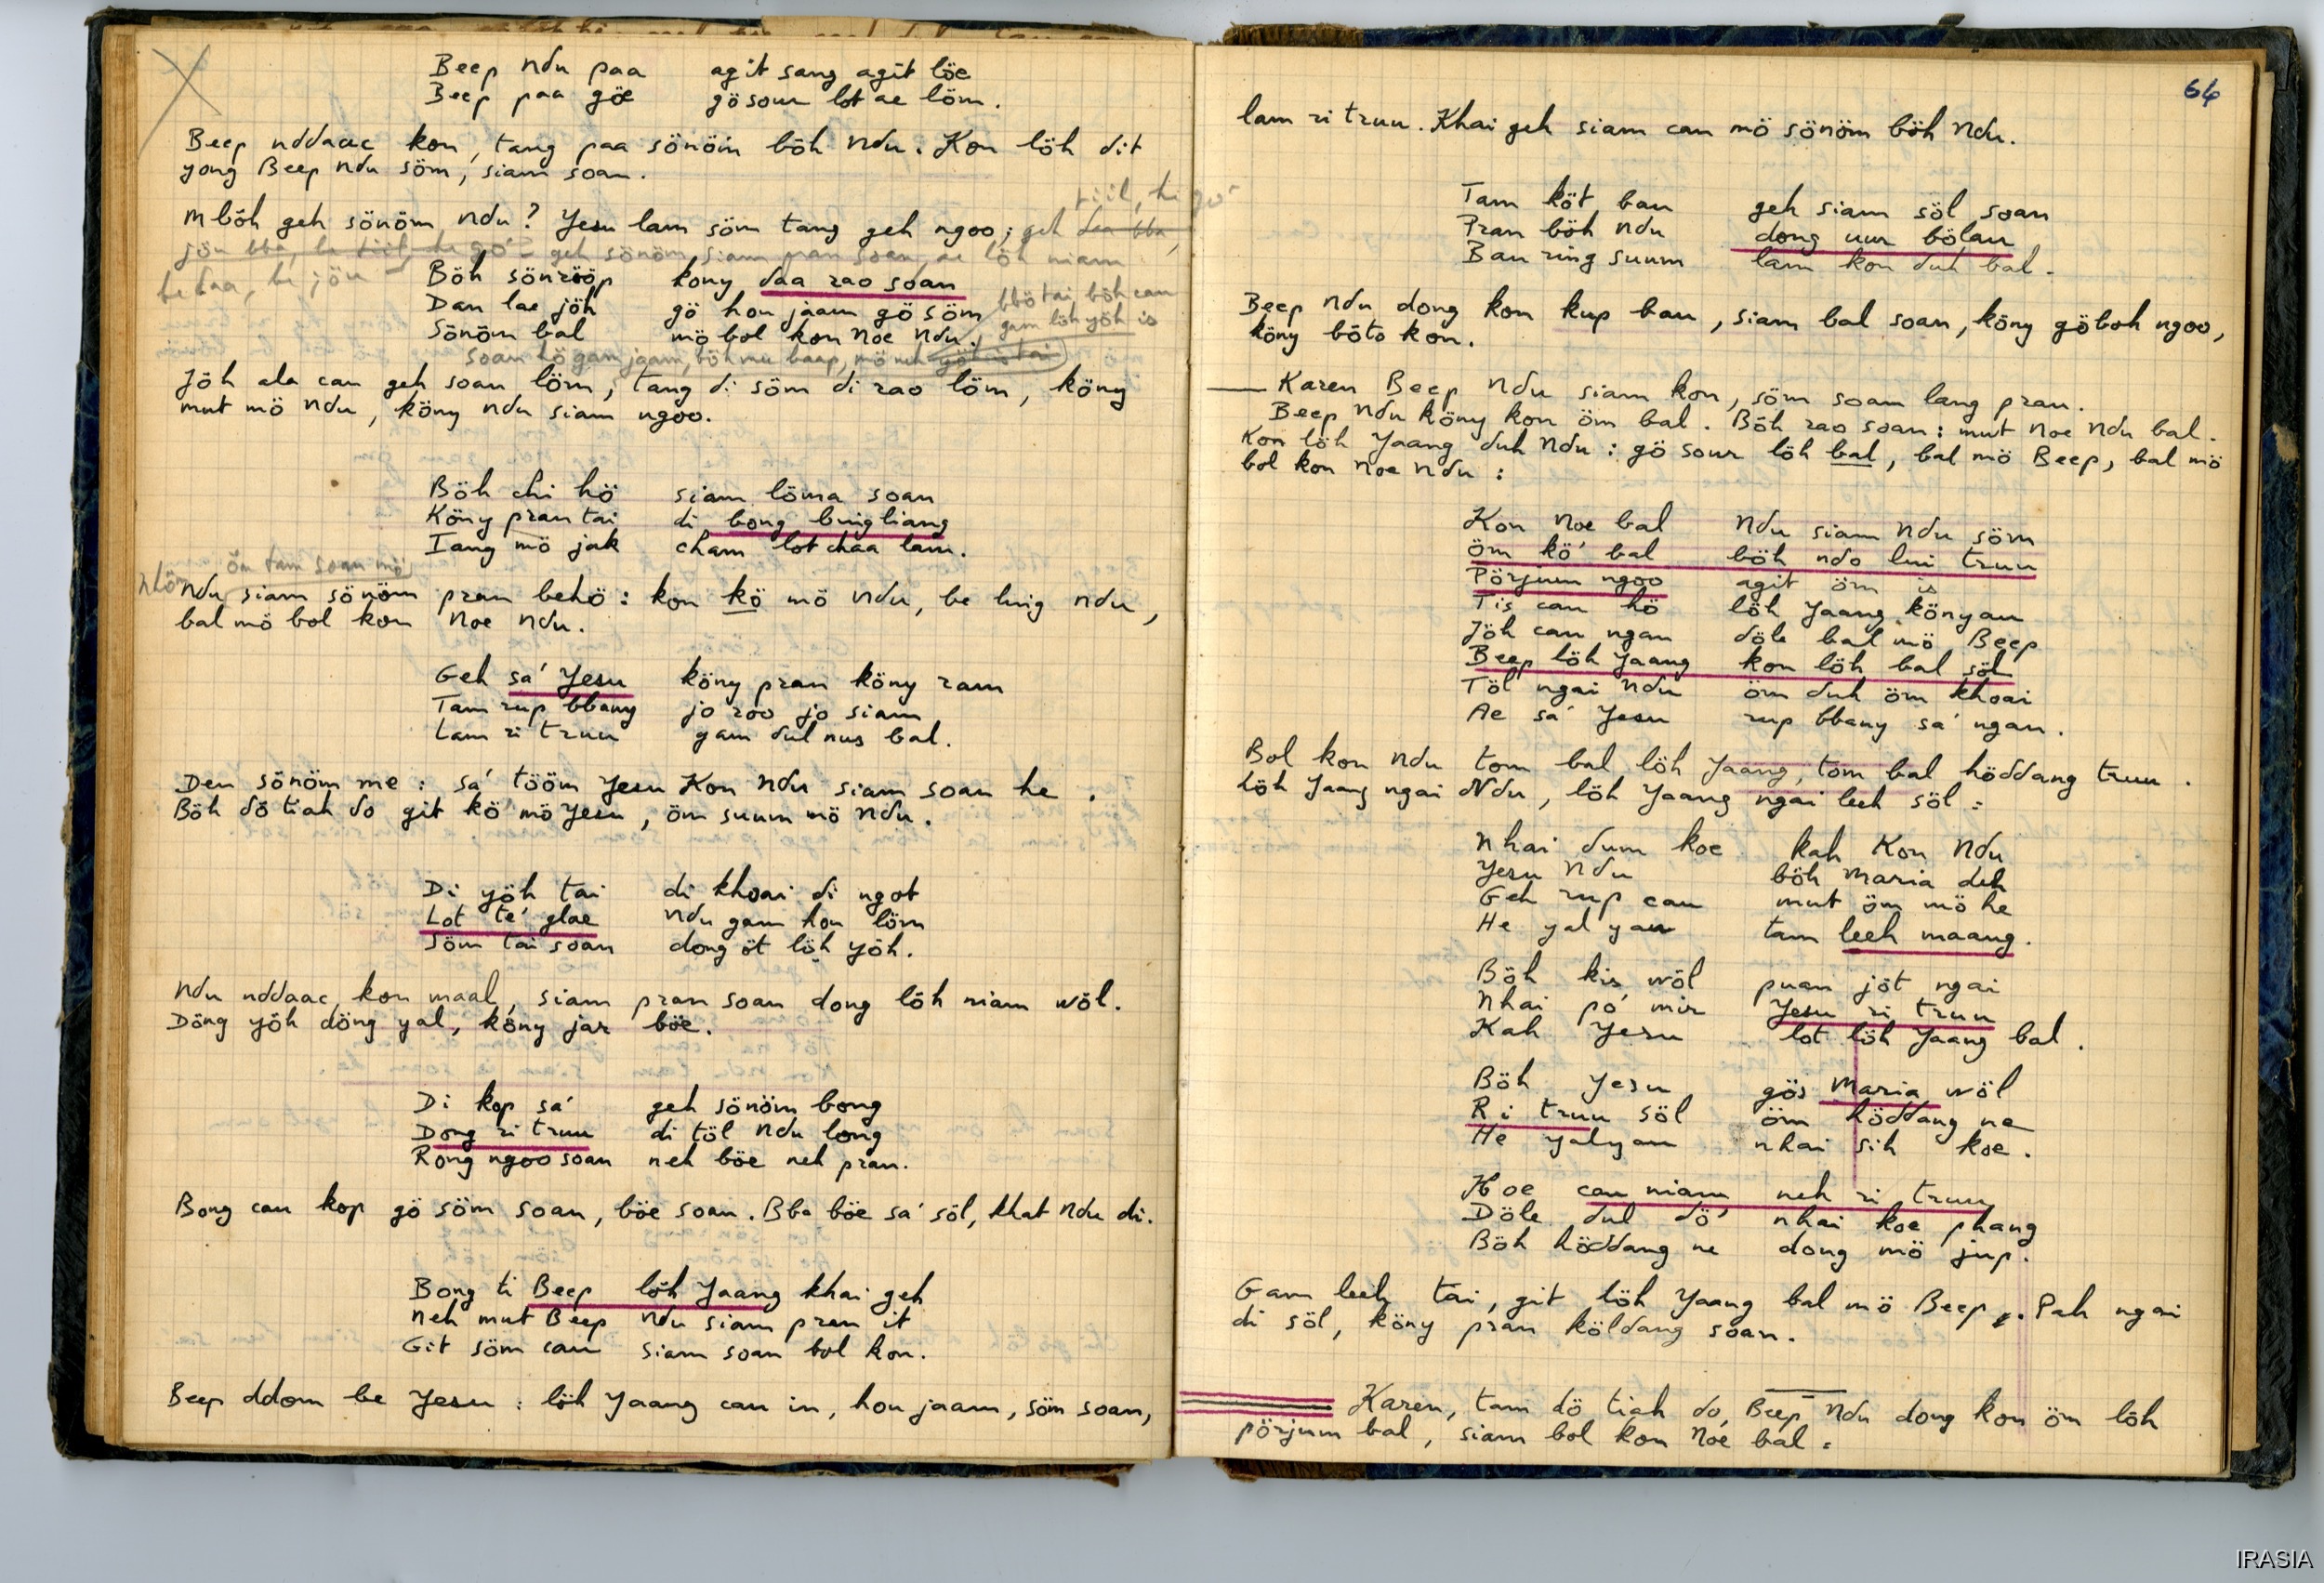 Beep Ndu paa agit sang agit löe
Beep paa göe gö sour lot ae löm.
Beep nddaac kon, tang paa sönöm böh Ndu. Kon löh dit
yong Beep Ndu söm, siam soan.
Mböh geh sönöm Ndu? Yesu lam söm tang geh ngoo, geh daa bba,
geh sönöm siam pran soan, ae löh niam
be daa, be jöu
Böh sönrööp köny daa rao soan
Dan lae jöh gö hou jaam gö söm
Sönöm bal mö bol kon Noe Ndu.
bbö tai böh can
gam löh yöh is
soan hö gam jaam, böh mu baap, mö neh
Jöh ala can geh soan löm, tang di söm di rao löm, köny
mut mö Ndu, köny Ndu siam ngoo.
Böh chi hö siam löma soan
Köny pran tai di bong huig liang
Iang mö jak cham lot chaa lam.
ön tam soan mö
Ndu siam sönöm pran behö : kon kö mö Ndu, be huig Ndu,
bal mö bol kon Noe Ndu.
Geh sá Yesu köny pran köny ram
Tam rup bbany jo roo jo siam
Lam ri truu gam dul nus bal.
Den sönöm me : sá tööm Yesu Kon Ndu siam soan he.
Böh dö tiah do git kö mö Yesu, öm suum mö Ndu.
Di yöh tai di khoai di ngot
Lot té glae Ndu gam hou löm
Söm tai soan dong öt löh yöh.
Ndu nddaac kon maal, siam pran soan dong löh niam wöl.
Döng yöh döng yal, köny jar böe.
Di kop sá geh sönöm bong
Dong ri truu di töl Ndu long
Rong ngoo soan neh böe neh pran.
Bong can kop gö söm soan, böe soan. Bba böe sá söl, khat Ndu di.
Bong ti Beep löh Yaang khai geh
Neh mut Beep Ndu siam pran it
Git söm can siam soan bol kon.
Beep ddom be Yesu : löh Yaang can in, hou jaam, söm soan,
64
lam ri truu. Khai geh siam can mö sönöm böh Ndu.
Tam köt ban geh siam söl soan
Pran böh Ndu dong uur bölau
Ban ring suum lam kon duh bal.
Beep Ndu dong kon kup ban, siam bal soan, köny göboh ngoo,
köny böto kon.
— Karen Beep Ndu siam kon, söm soan lang pran.
Beep Ndu köny kon öm bal. Böh rao soan : mut Noe Ndu bal.
Kon löh Yaang duh Ndu : gö sour löh bal, bal mö Beep, bal mö
bol kon Noe Ndu :
Kon Noe bal Ndu siam Ndu söm
öm kö bal böh ndo lui truu
Pörjum ngoo agit öm is
Tis can hö löh Yaang könyau
Jöh can ngan döle bal mö Beep
Beep löh Yaang kon löh bal söl
Töl ngai Ndu öm duh öm khoai
Ae sá Yesu rup bbany sá ngan.
Bol kon Ndu tom bal löh Yaang, tom bal höddang truu.
Löh Yaang ngai Ndu, löh Yaang ngai leeh söl :
Nhai dum koe kah Kon Ndu
Yesu Ndu böh Maria deh
Geh rup can mut öm mö he
He yal yau tam leeh maang.
Böh kis wöl puan jöt ngai
Nhai pó mir Yesu ri truu
Kah Yesu lot löh Yaang bal.
Böh Yesu gös Maria wöl
Ri truu söl öm höddang ne
He yalyau nhai sih koe.
Koe can niam neh ri truu
Döle dul dö nhai koe phang
Böh höddang ne dong mö jup.
Gam leeh tai, git löh Yaang bal mö Beep. Pah ngai
di söl, köny pran köldang soan.
Karen, tam dö tiah do, Beep Ndu dong kon öm löh
pörjum bal, siam bol kon Noe bal :
IRASIA